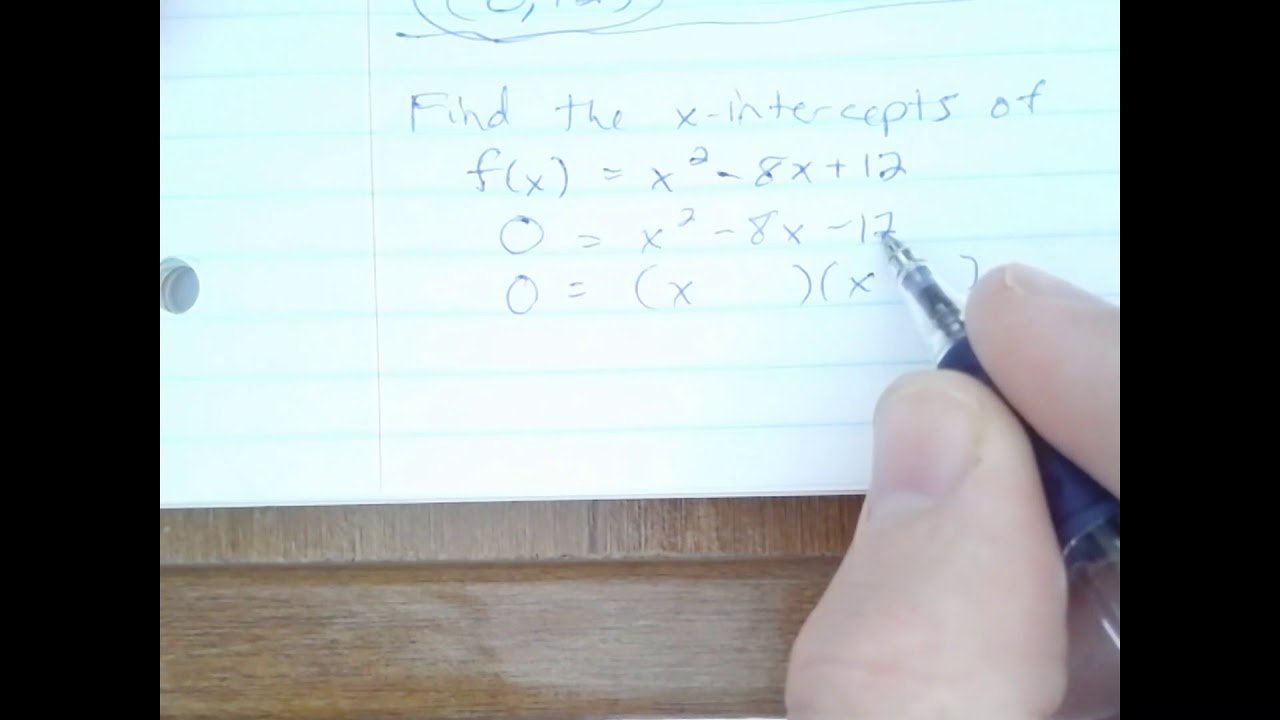 Find the x-intercepts of
f(x) = x² - 8x + 12
0 = x² - 8x - 12
0 = (x )(x )